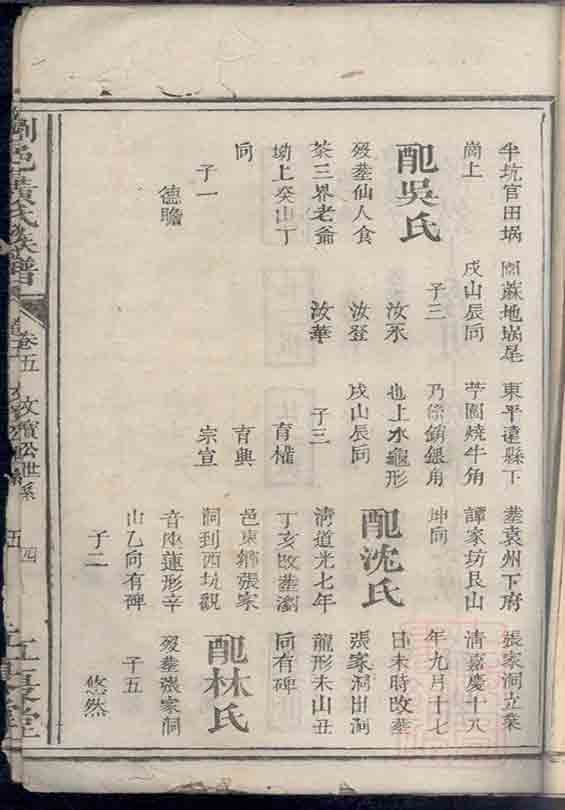 半坑官田埚
崗上
配吳氏
歿葬仙人食
茶三界老爺
坳上癸山丁
向
子一
德瞻
園蔴地埚尾
戌山辰向
子三
汝永
汝登
汝華
東平遠縣下
芓園燒牛角
乃係銷銀角
也上水龜形
戌山辰向
子三
育權
育興
宗宣
葬袁州下府
譚家坊艮山
坤向
配沈氏
清道光七年
丁亥改葬瀏
邑東鄉張家
洞到西坑觀
音座蓮形辛
山乙向有碑
子二
張家洞立業
清嘉慶十八
年九月十七
日未時改葬
張家洞田洞
龍形未山丑
向有碑
配林氏
歿葬張家洞
子五
悠然
瀏邑黃氏族譜
卷五
文寶公世系
五
四
江夏堂